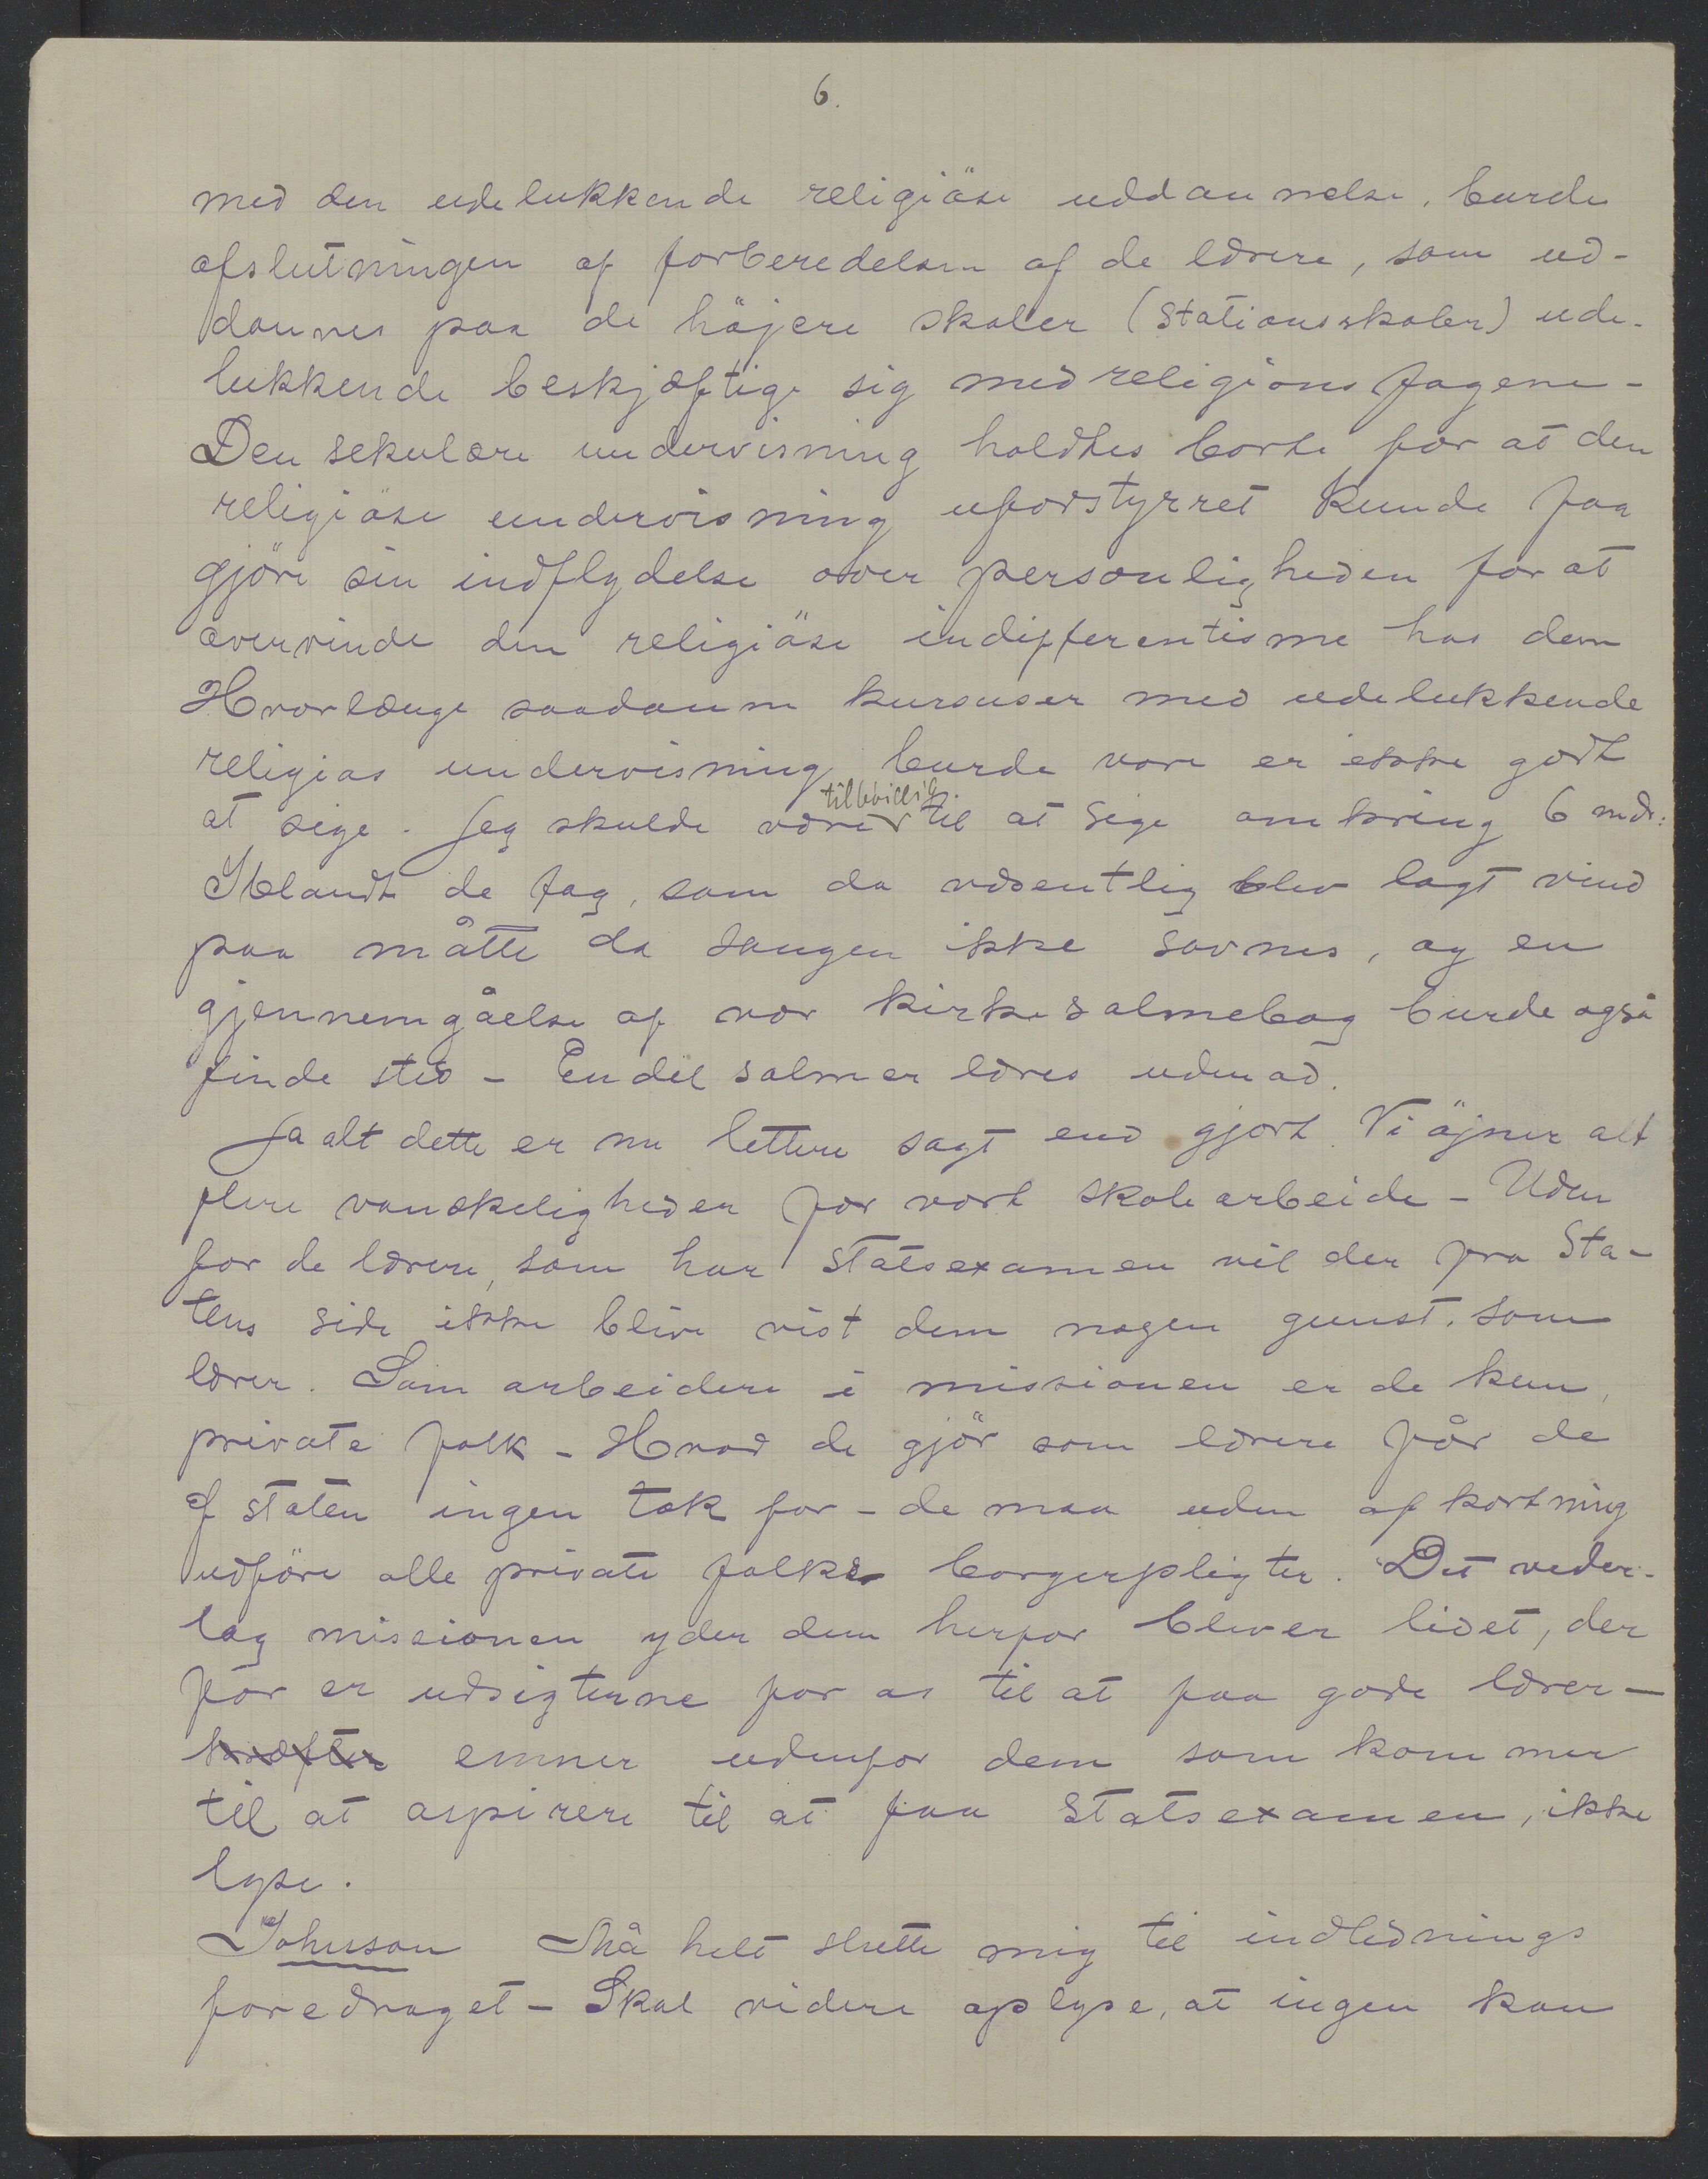 6.
med den udelukkende religiöse uddannelse, burde
afslutningen af forberedelsen af de lærere, som ud-
dannes paa de höjere skoler (Stationsskoler) ude-
lukkende beskjæftige sig med religions fagene -
Den sekulære undervisning holdtes borte for at den
religiöse undervisning uforstyrret kunde faa
gjöre sin indflydelse over personligheden for at
overvinde den religiöse indifferentisme hos dem
Hvorlænge saadann kursuser med udelukkende
religios undervisning burde vare er ikke godt
tilböielig
at sige. Jeg skulde være til at sige omkring 6 mdr.
Iblandt de fag, som da væsentlig blev lagt vind
paa måtte da sangen ikke savnes, og en
gjennemgåelse af vor kirkesalmebog burde også
finde sted - En del salmer læres udenad.
Ja alt dette er nu lettere sagt end gjort. Vi öjner alt
flere vanskeligheder for vort skolearbeide - Uden
for de lærere, som har Statsexamen vil der fra Sta-
tens side ikke blive vist dem nogen gunst. som
lærer. Som arbeidere i missionen er de kun
private folk - Hvad de gjör som lærere får de
af staten ingen tak for - de maa uden afkortning
udföre alle private folks borgerpligter. Det veder-
lag missionen yder dem herfor bliver lidet, der
for er udsigterne for os til at faa gode lærer-
kræfter emner udenfor dem som kommer
til at aspirere til at faa Statsexamen, ikke
lyse.
Johnson Må helt slutte mig til indlednings
foredraget - Skal videre oplyse, at ingen kan